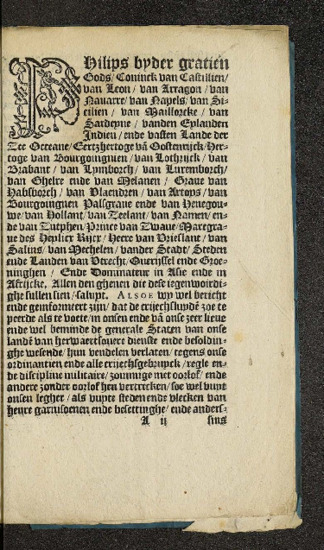 PHilips byder gratien
Gods/ Coninck van Castillien/
van Leon/ van Arragon/ van
Nauarre/ van Napels/ van Si-
cilien/ van Maillorcke/ van
Sardeyne/ vanden Eylanden
Indien/ ende vasten Lande der
Zee Occeane/ Eertzhertoge vā Oostenrijck/ Her-
toge van Bourgoingnien/ van Lothrijck/ van
Brabant/ van Lymborch/ van Luxemborch/
van Ghelre ende van Melanen/ Graue van
Habsborch/ van Vlaendren/ van Artoys/ van
Bourgoingnen Palsgraue ende van Henegou-
we/ van Hollant/ van Zeelant/ van Namen/ en-
de van Zutphen/ Prince van Zwaue/ Marcgra-
ue des Heylicx Rijcx/ Heere van Vrieslant/ van
Salins/ van Mechelen/ vander Stadt/ Steden
ende Landen van Vtrecht/ Oueryssel ende Groe-
ninghen/ Ende Dominateur in Asie ende in
Affrijcke. Allen den ghenen die dese iegenwoirdi-
ghe sullen sien/ saluyt. ALSOE wy wel bericht
ende geinformeert zijn/ dat de crijechsluyde zoe te
peerde als te voete/ in onsen ende vā onse zeer lieue
ende wel beminde de generale Staten van onse
landē van herwaertsouere dienste ende besoldin-
ghe wesende/ hun vendelen verlaten/ tegens onse
ordinantien ende alle crijechsgebruyck/ regle en-
de discipline militaire/ zommige met oorlof/ ende
andere zonder oorlof hen vertrecken/ soe wel vuyt
onsen legher/ als vuyte steden ende vlecken van
heure garnisoenen ende besettinghe/ ende anders-
A ij sins